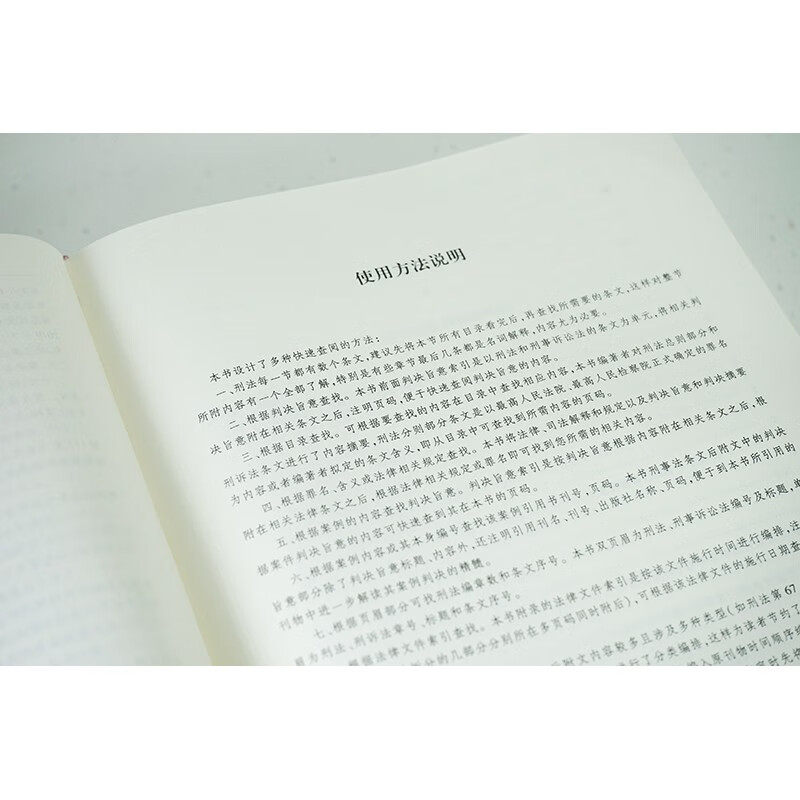 使用方法说明
本书设计了多种快速查阅的方法：
一、刑法每一节都有数个条文，建议先将本节所有目录看完后，再查找所需要的条文，这样对整节
所附内容有一个全部了解，特别是有些章节最后几条都是名词解释，内容尤为必要。
二、根据判决旨意查找。本书前面判决旨意索引是以刑法和刑事诉讼法的条文为单元，将相关判
决旨意附在相关条文之后，注明页码，便于快速查阅判决旨意的内容。
三、根据目录查找。可根据要查找的内容在目录中查找相应内容，本书编著者对刑法总则部分和
刑诉法条文进行了内容摘要，刑法分则部分条文是以最高人民法院、最高人民检察院正式确定的罪名
为内容或者编著者拟定的条文含义，即从目录中可查找到所需内容的页码。
四、根据罪名、含义或法律相关规定查找。本书将法律、司法解释和规定以及判决旨意和判决摘要
附在相关法律条文之后，根据法律相关规定或罪名即可找到您所需的相关内容。
五、根据案例的内容查找判决旨意。判决旨意索引是按判决旨意根据内容附在相关条文之后，根
据案件判决旨意的内容可快速查到其在本书的页码。
六、根据案例内容或其本身编号查找该案例引用书刊号，页码。本书刑事法条文后附文中的判决
旨意部分除了判决旨意标题、内容外，还注明引用刊名、刊号、出版社名称、页码，便于到本书所引用的
刊物中进一步解读其案例判决的精髓。
七、根据页眉部分可找刑法编章数和条文序号。本书双页眉为刑法、刑事诉讼法编号及标题，单
眉为刑法、刑诉法章号、标题和条文序号。
根据法律文件索引查找。本书附来的法律文件索引是按该文件施行时间进行编排，注
部分的几部分分别所在多页码同时附后），可根据该法律文件的施行日期查
后附文内容较多且涉及多种类型（如刑法第67
行了分类编排，这样为读者节约了
入原刊物时间顺序